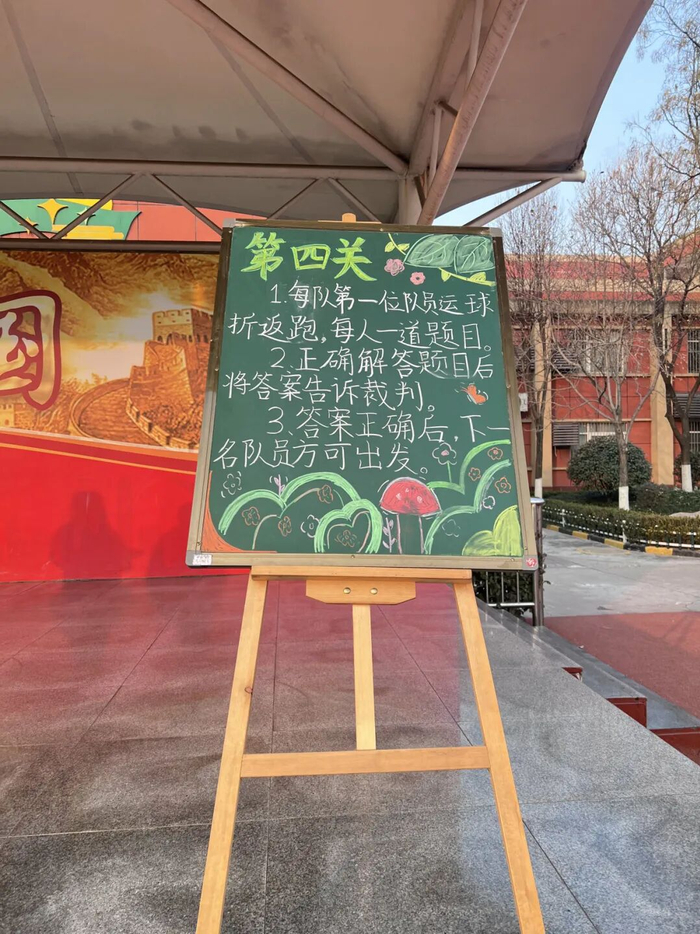 第四关
1.每队第一位队员运球
折返跑,每人一道题目。
2.正确解答题目后
将答案告诉裁判。
3.答案正确后,下一
名队员方可出发。